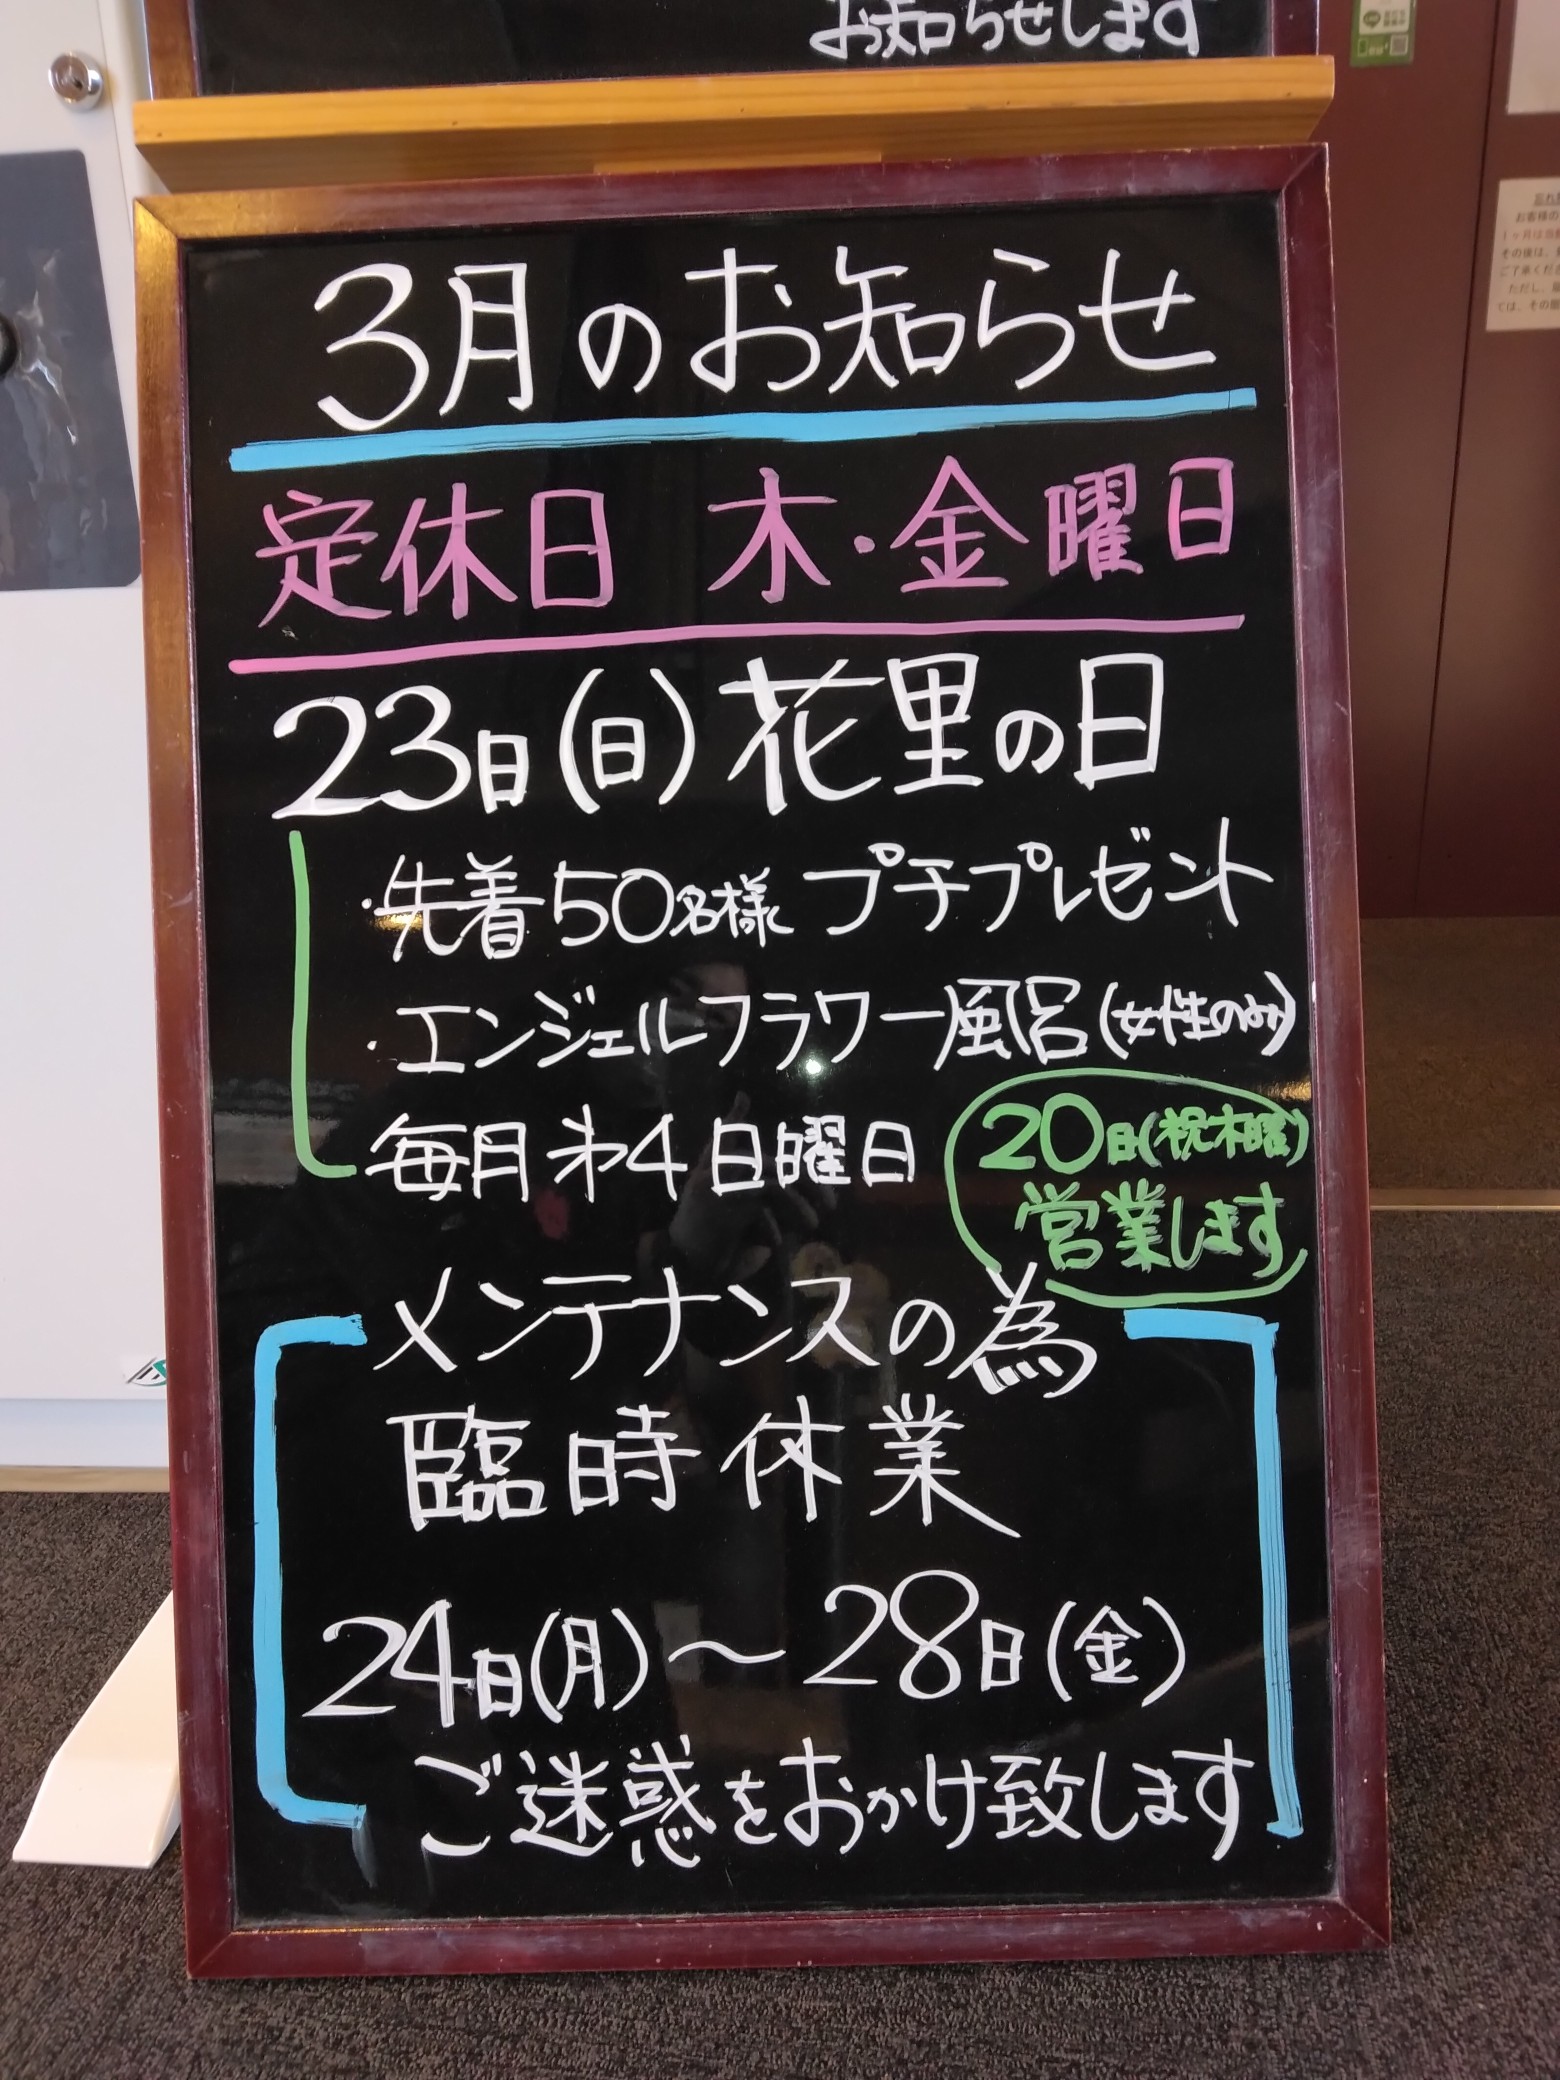 お知らせします
3月のお知らせ
定休日 木・金曜日
23日(日)花里の日
・先着50名様 プチプレゼント
・エンジェルフラワー風呂(女性のみ)
毎月㐧4日曜日
20日(祝木曜)
営業します
メンテナンスの為
臨時休業
24日(月)～28日(金)
ご迷惑をおかけ致します
お客様の
その後は、
ご了承くだ
ただし、